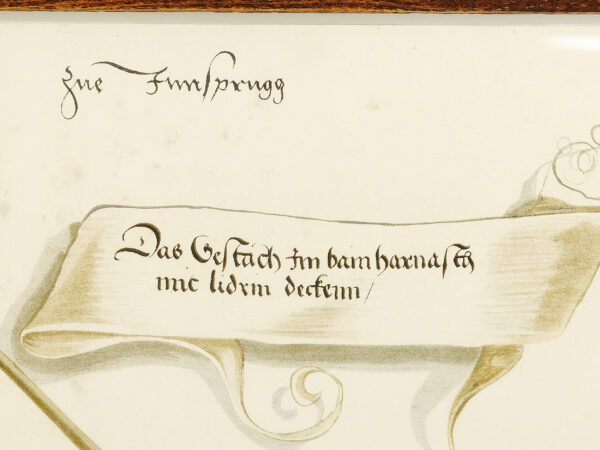 Zue Innsprugg
Das Gestäch Im bainharnasch
mit lidrin deckenn/